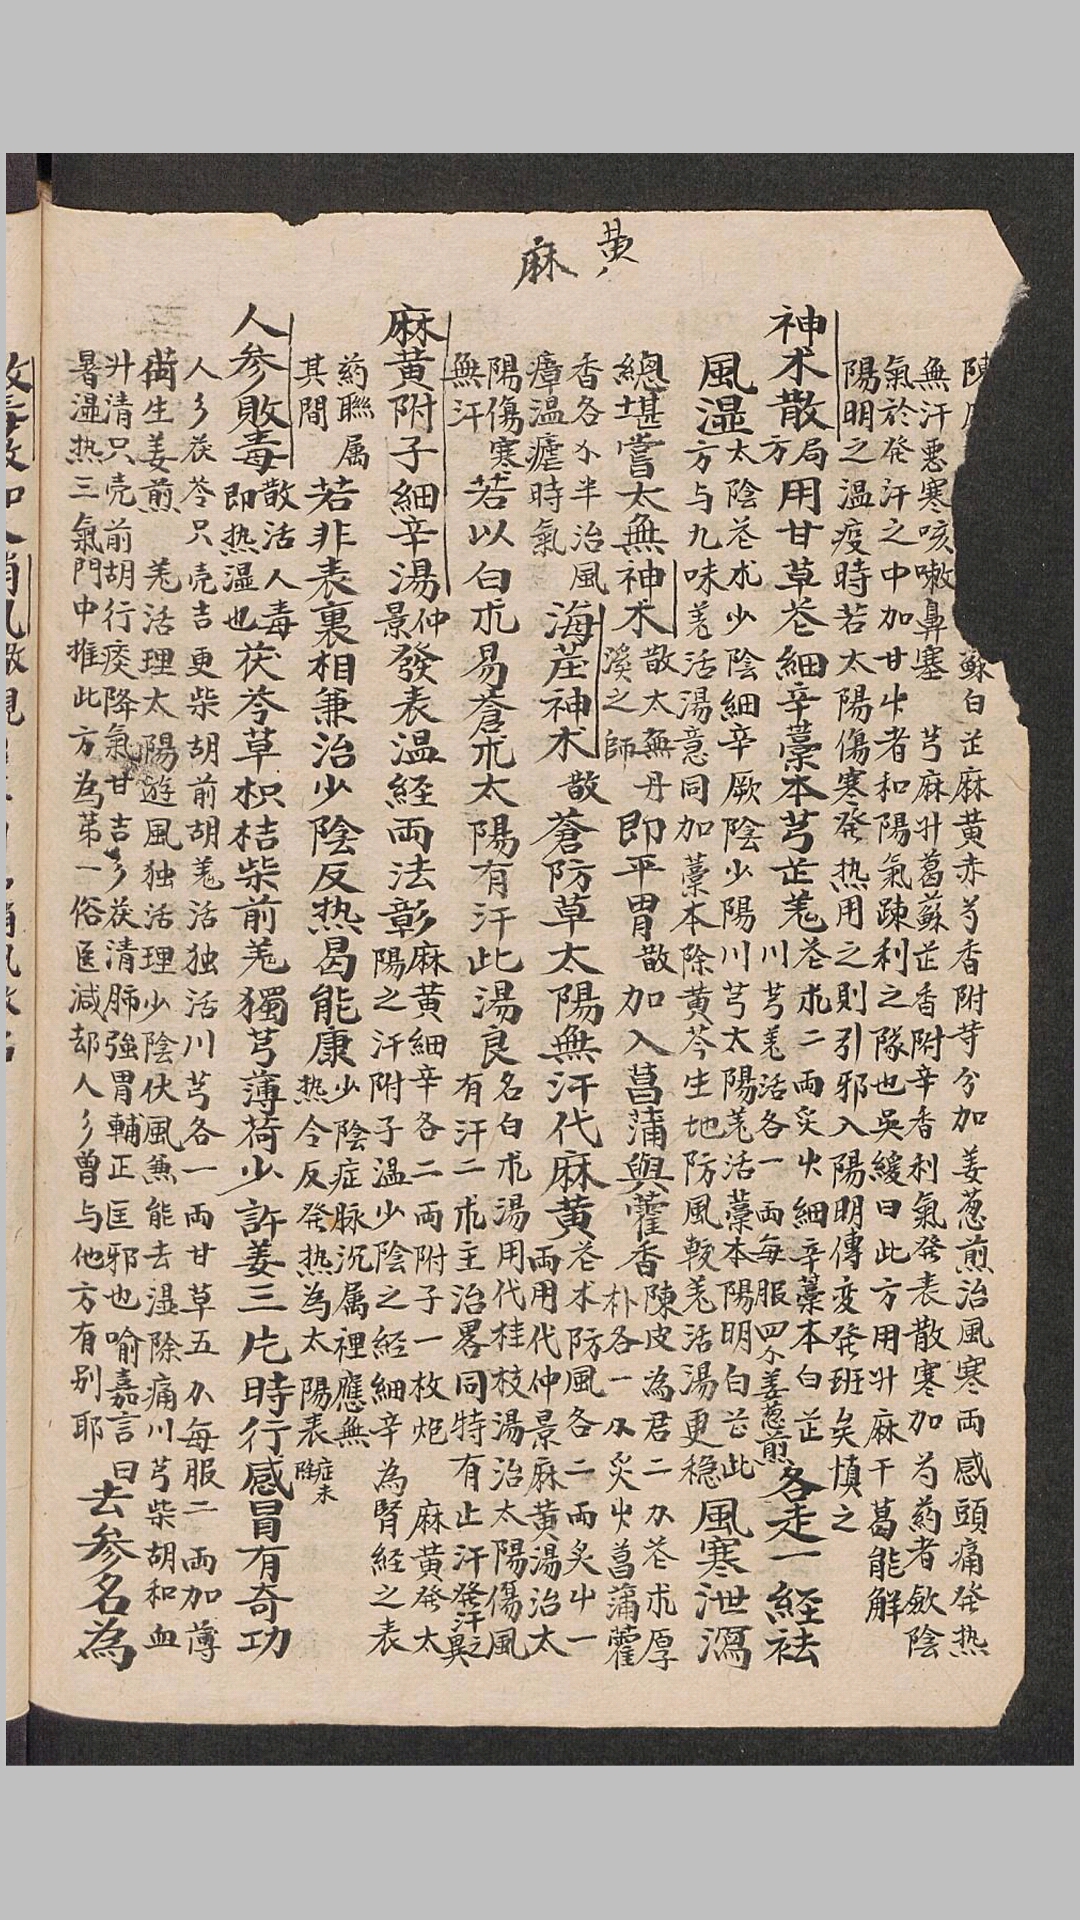 黄
麻
蘇白芷麻黄赤芍香附等分加姜葱煎治風寒両感頭痛発热
無汗悪寒咳嗽鼻塞 芎麻升葛蘇芷香附辛香利氣発表散寒加芍葯者斂陰
氣於発汗之中加甘草者和陽氣踈利之隊也吳綬曰此方用升麻干葛能解
陽明之温疫時若太陽傷寒発热用之則引邪入陽明傳变発班矣慎之
神术散局方用甘草苍細辛藁本芎芷羗
苍朮二両炙草細辛藁本白芷
川芎羗活各一両每服四分姜葱煎
各走一經袪
風湿
太陰苍朮少陰細辛厥陰少陽川芎太陽羗活藁本陽明白芷此
方与九味羗活湯意同加藁本除黄芩生地防風較羗活湯更穩
風寒泄瀉
總堪嘗太無神术
散太無丹
溪之師
即平胃散加入菖蒲與藿香
陳皮為君二分苍朮厚
朴各一分炙草菖蒲藿
香各分半治風
瘴温瘧時氣
海茫神术散蒼防草太陽無汗代麻黄
苍朮防風各二両炙草一
両用代仲景麻黄湯治太
陽傷寒
無汗
若以白朮易蒼朮太陽有汗此湯良
名白朮湯用代桂枝湯治太陽傷風
有汗二朮主治畧同特有止汗発汗異之
麻黄附子細辛湯
仲
景
發表温経両法彰
麻黄細辛各二両附子一枚炮 麻黄発太
陽之汗附子温少陰之経細辛為腎経之表
葯聯属
其間
若非表裏相兼治少陰反热曷能康
少陰症脉沉属裡應無
热今反発热為太陽表
症未
除
人参敗毒
散活人毒
即热湿也
茯苓草枳桔柴前羗獨芎薄荷少許姜三片時行感冒有奇功
人参茯苓只壳吉更柴胡前胡羗活独活川芎各一両甘草五分每服二両加薄
荷生姜煎 羗活理太陽遊風独活理少陰伏風兼能去湿除痛川芎柴胡和血
升清只壳前胡行痰降氣甘吉参茯清肺強胃輔正匡邪也喻嘉言曰
暑湿热三氣門中推此方為第一俗医減却人参曽与他方有别耶
去参名為